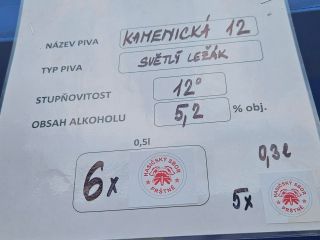 NÁZEV PIVA KAMENICKÁ 12
TYP PIVA SVĚTLÝ LEŽÁK
STUPŇOVITOST 12°
OBSAH ALKOHOLU 5,2 % obj.
0,5l
0,3l
6x HASIČSKÝ SBOR PRŠTNÉ
5x HASIČSKÝ SBOR PRŠTNÉ